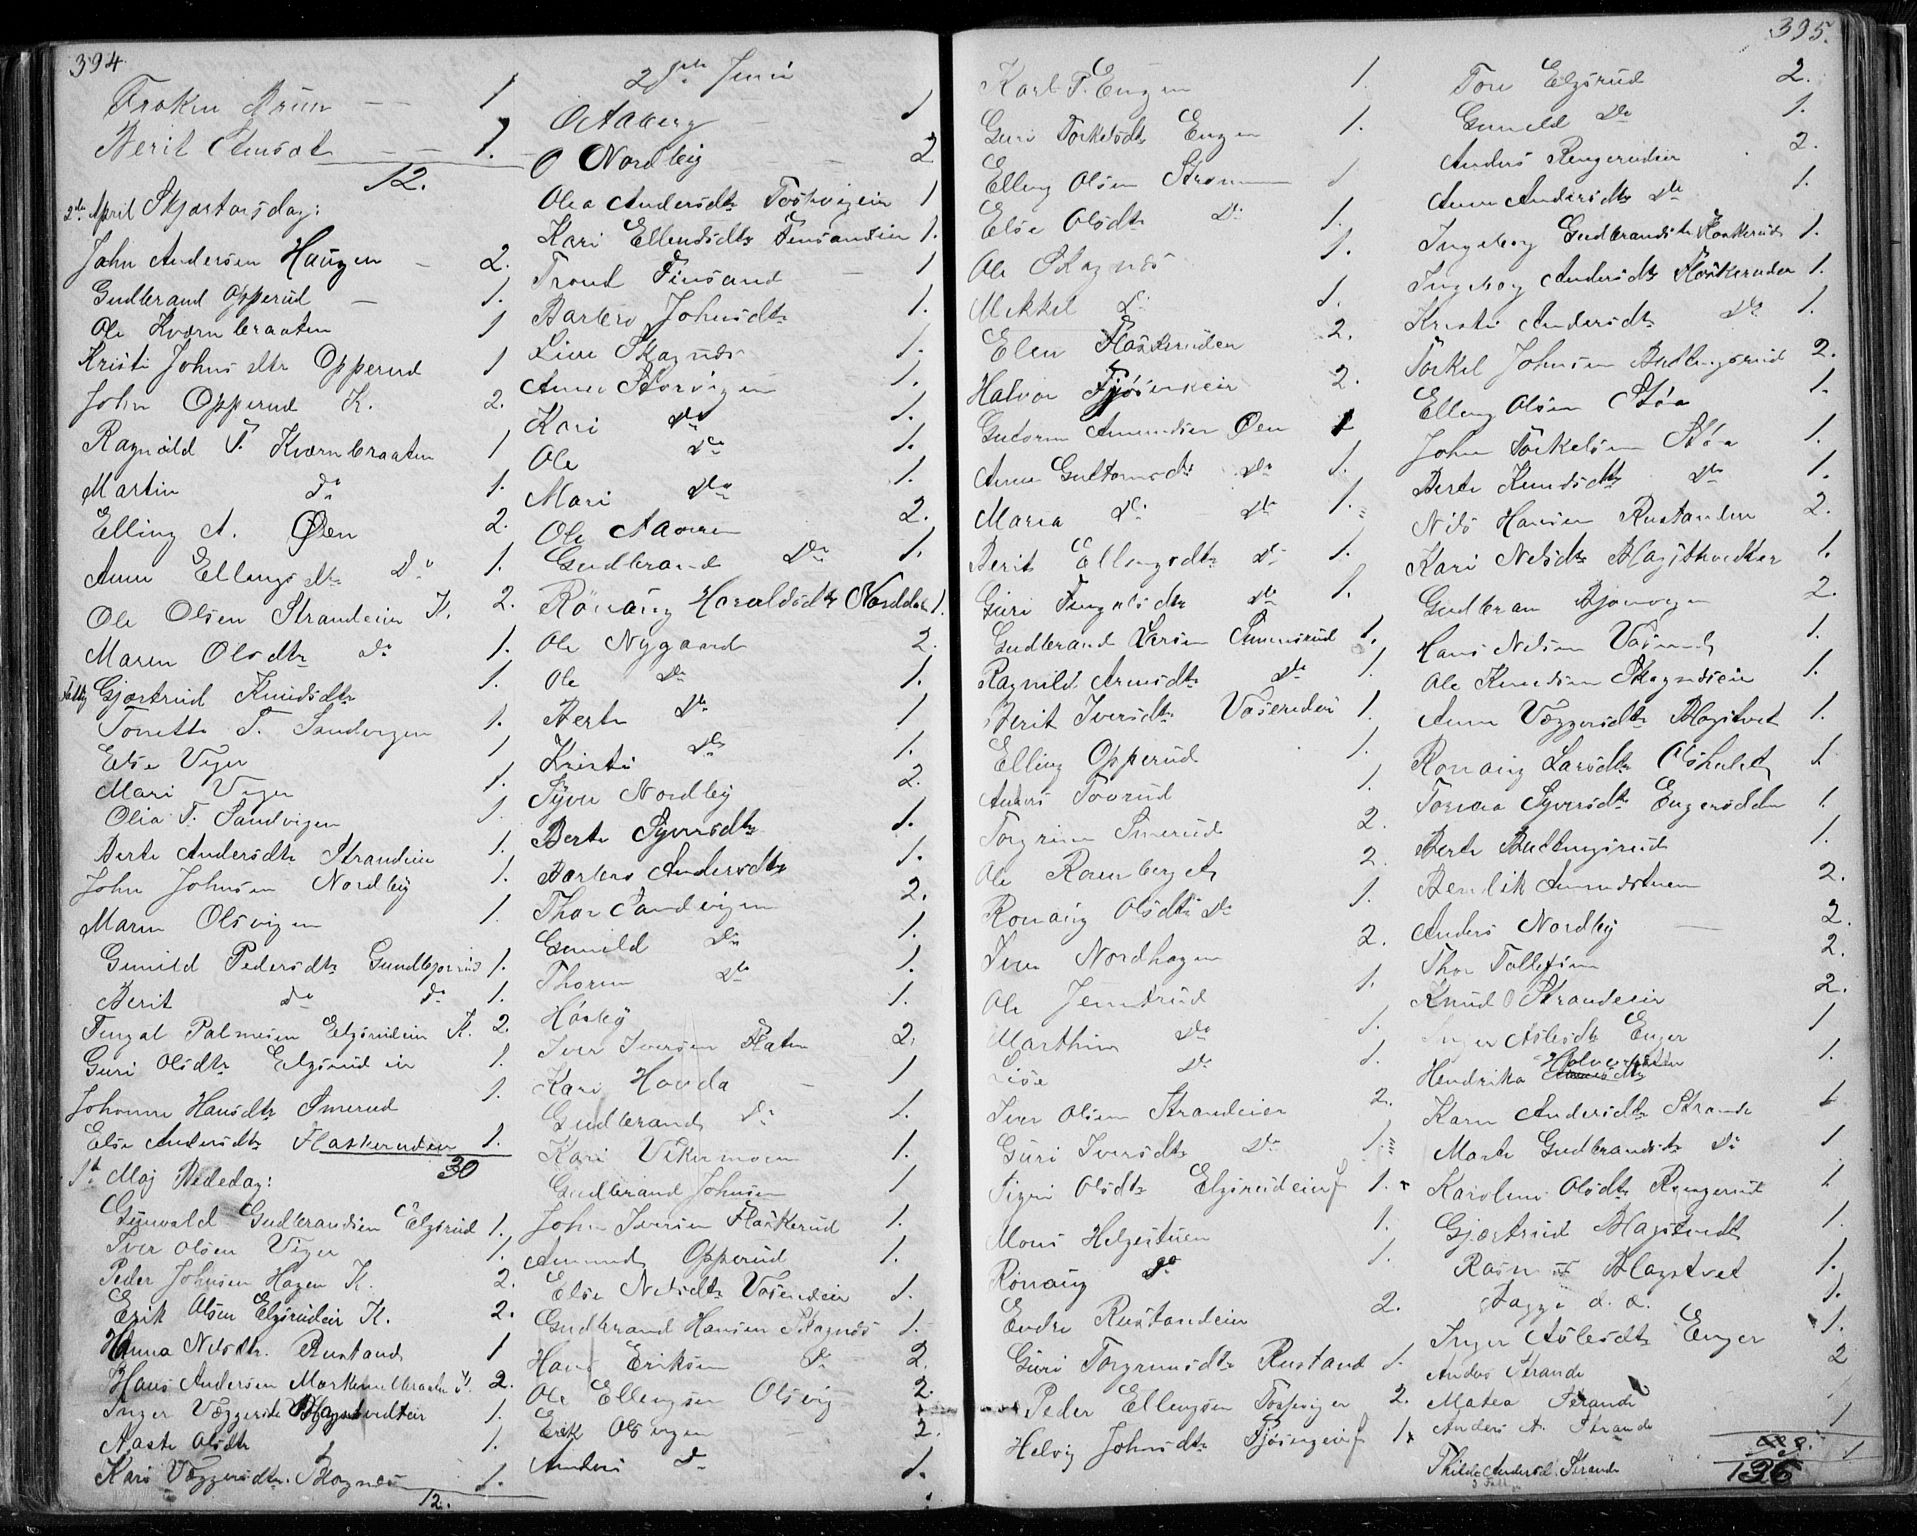 394
Frøken Brun — — 1
Berit Amsdt — — 1.
12.
2de April Skjærtorsdag:
John Andersen Haugen — 2.
Gudbrand Opperud — 1.
Ole Kværnbraaten 1
Kristi Johnsdtr Opperud 1
John Opperud K. 2.
Ragnild T. Kværnbraaten 1
Martin Do 1.
Elling A. Øen 2.
Anne Ellingsdtr Do 1.
Ole Olsen Strandeier K. 2.
Maren Olsdtr do 1.
Gjærtrud Knudsdtr 1.
Tonette T. Sandvigen 1.
Else Viger 1
Mari Viger 1.
Olia T. Sandvigen 1
Berte Andersdtr Strandeie 1.
John Johnsen Nordby 1.
Maren Olsvigen 1.
Gunild Pedersdtr Gundbjørrud 1.
Berit do do 1.
Fingal Palmesen Elgsrudeien K. 2.
Guri Olsdtr Elgsrudein 1.
Johanne Hansdtr Smerud 1.
Else Andersdtr Flaskerudeie 1.
30
1ste Maj Bededag:
Gunvald Gudbrandsen Elgsrud 1.
Iver Olsen Viger 1.
Peder Johnsen Hagen K. 2.
Erik Olsen Elgsrudeier K. 2.
Anna Nilsdtr. Rustand 1
Hans Andersen K. 2.
Inger Væggersdtr Magstvedteier 1.
Aaste Olsdtr 1.
Kari Væggersdtr. Skagnæs 1.
12.
2den Juni
O Aaberg — 1
O Nordby — — 2
Olea Andersdtr Toshvigeier 1
Kari Ellendsdtr Finsandeier 1.
Trond Finsand — 1
Barbro Johnsdtr 1.
Live Skagnæs 1.
Anne Storvigen 1.
Kari Do 1.
Ole Do 1.
Mari Do 1.
Ole Aaveren 2.
Gudbrand Do 1.
Rönaug Haraldsdtr Norddal 1.
Ole Nygaard 2.
Ole Do 1.
Berte Do 1
Kristi Do 1.
Syver Nordby 2.
Berte Syversdtr 1.
Barbro Andersdtr 1.
Thor Sandvigen 2.
Gunild Do 1.
Thorine Do 1.
Høsby 1.
Iver Iversen Flaten 2.
Kari Hovda — 1
Gudbrand Do 1.
Kari Vikermoen 1.
Gudbrand Johnsen 1
John Iversen Flaskerud 1.
Amund Opperud 1.
Else Nelsdtr Vasendeier 1.
Gudbrand Hansen Skagnæs 1.
Hans Eriksen Do 2.
Ole Ellingsen Olsvig 2.
Erik Olsvigen 2.
Anders Do 1.
395.
Karl P. Engen 1.
Guri Torkelsdtr Engen 1.
Elling Olsen Strømmen 1
Else Olsdtr Do 1.
Ole Skagnæs 1.
Mikkel Do 1.
Elen Flaskeruden 2.
Halvor Fjøseneier 2.
Gutorm Amundsen Øen 1
Anne Guttormsdtr Do 1.
Maria Do Do 1.
Berit Ellingsdtr Do 1.
Guri Fingalsdtr Do 1.
Gudbrand Larsen 1.
Ragnild Arnesdtr Do 1
Berit Iversdtr Vasendeie 1
Elling Opperud 1.
Anders Tovrud 1
Torgrim Smerud 2.
Ole Ramberget 2.
Ronaug Olsdtr Do 1.
Iver Nordhagen 2.
Ole Jerntrud 1.
Marthin Do 1.
Lise Do 1.
Iver Olsen Strandeier 2.
Guri Iversdtr Do 1.
Sigri Olsdtr Elgsrudeier 1.
Mons Helgestuen 1.
Rönaug Do 1.
Endre Rustandeier 2.
Guri Torgrimsdtr Rustand 1.
Peder Ellingsen Tosseviger 2.
Helvig Johnsdtr Fjøsengeier 1
Tore Elgsrud 2.
Gunild Do 1.
Anders Rengerudeier 2.
Anne Andersdtr Do 1.
Ingeborg Gudbrandsdtr Flaskerud 1.
Ingeborg Andersdtr Flaskeruden 1.
Kristi Andersdtr Do 1.
Torkel Johnsen Butlingsrud 2.
Elling Olsen Støa 1.
John Torkelsen Støa 1.
Berte Knudsdtr Do 1.
Nils Hansen Rustanden 2.
Kari Nelsdtr Magsthvedteier 1.
Gudbran Bjønvigen 2.
Hans Nelsen Vasend 1.
Ole Knudsen Skagnæseie 1.
Anne Væggersdtr Magstvet 1.
Ronaug Larsdtr 1
Tomea Syversdtr Engerodden 1.
Berte Butlingsrud 1.
Bendik Amundstuen 2.
Anders Nordby — 2.
Thor Tollefsen 2.
Knud O Strandeier 2.
Inger Aslesdtr Enger 1
Hendrika 1.
Karn Andersdtr Strande 1
Marte Gudbrandsdtr Do 1
Karoline Olsdtr Rengerud 1
Gjærtrud Magstvedt 1.
Rasmus Magstvet 1.
d. d. 1.
Inger Aslesdtr Enger 1.
Andes Strande 2
Matea Strande
Anders A. Strande 1
Thilde Andersd. Strande 1
136